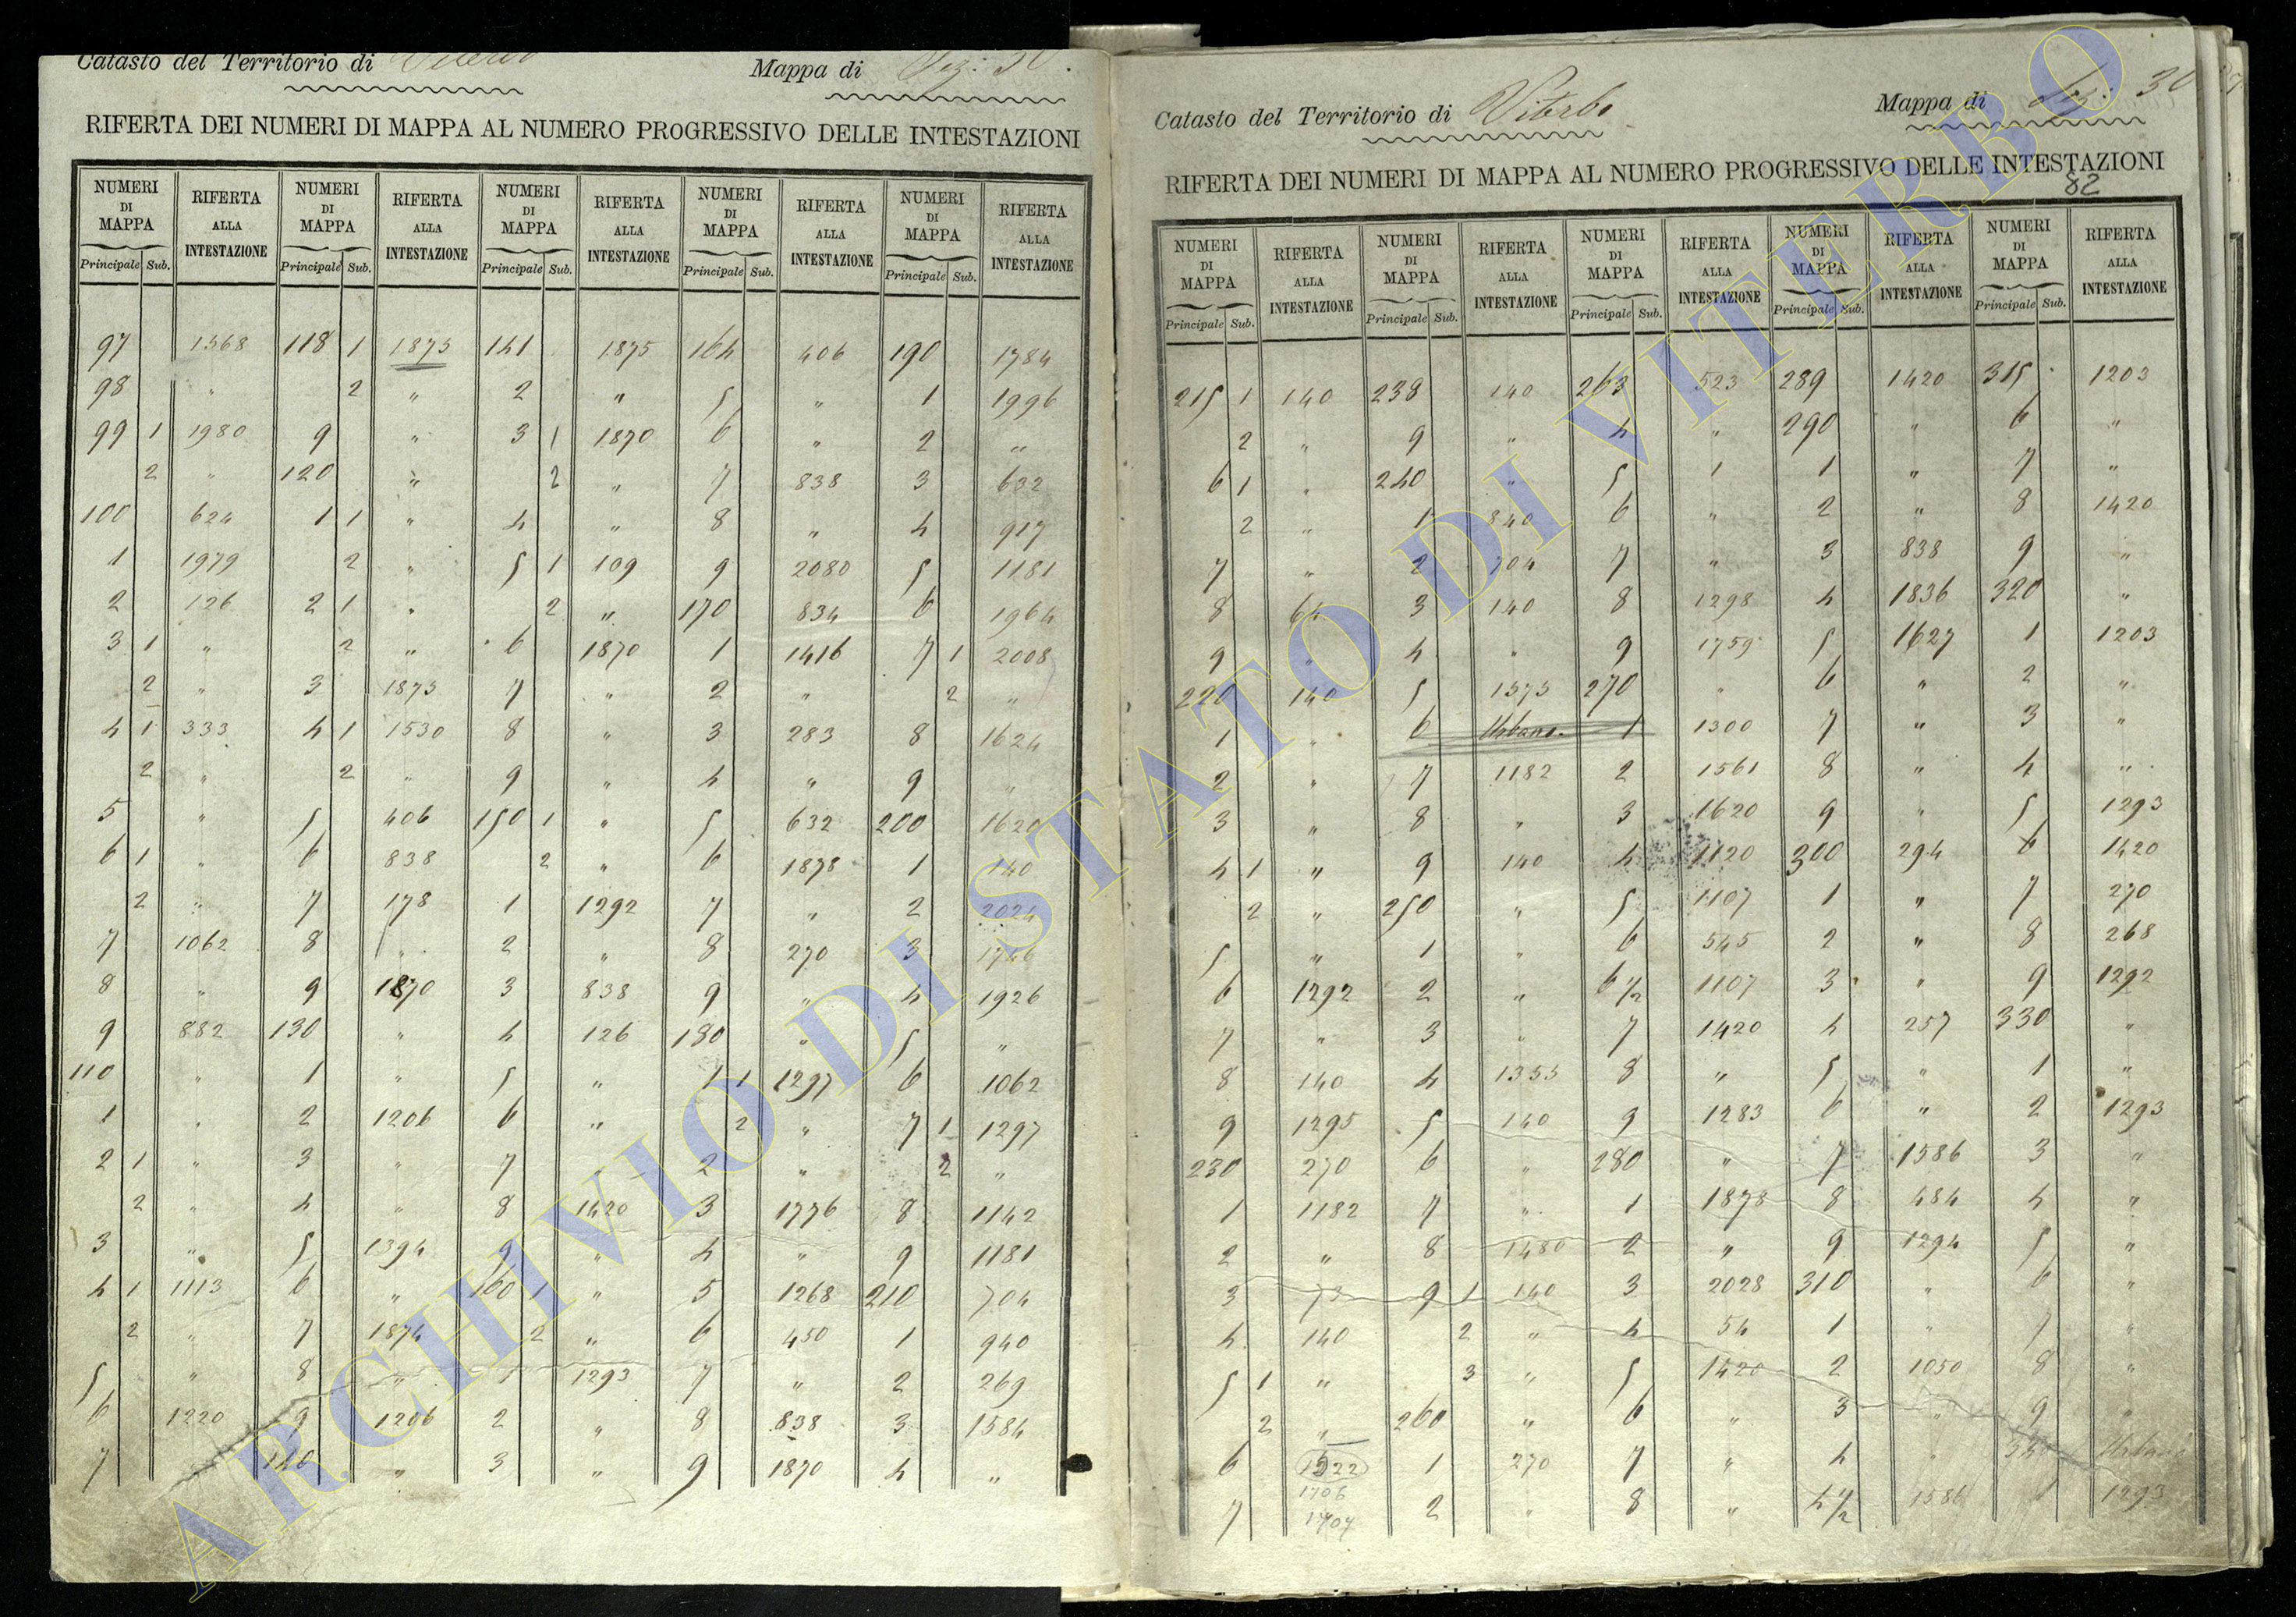 Catasto del Territorio di Viterbo Mappa di Sez: 30.
RIFERTA DEI NUMERI DI MAPPA AL NUMERO PROGRESSIVO DELLE INTESTAZIONI
NUMERI DI MAPPA RIFERTA ALLA INTESTAZIONE NUMERI DI MAPPA RIFERTA ALLA INTESTAZIONE NUMERI DI MAPPA RIFERTA ALLA INTESTAZIONE NUMERI DI MAPPA RIFERTA ALLA INTESTAZIONE NUMERI DI MAPPA RIFERTA ALLA INTESTAZIONE
Principale Sub. Principale Sub. Principale Sub. Principale Sub. Principale Sub.
97 1568 118 1 1875 141 1875 164 406 190 1784
98 " 2 " 2 " 5 " 1 1996
99 1 1980 9 " 3 1 1870 6 " 2 "
2 " 120 " 2 " 7 838 3 632
100 624 1 1 " 4 " 8 " 4 917
1 1979 2 " 5 1 109 9 2080 5 1181
2 126 2 1 " 2 " 170 834 6 1964
3 1 " 2 " 6 1870 1 1416 7 1 2008
2 " 3 1875 7 " 2 " 2 "
4 1 333 4 1 1530 8 " 3 283 8 1624
2 " 2 " 9 " 4 " 9 "
5 " 5 406 150 1 " 5 632 200 1620
6 1 " 6 838 2 " 6 1878 1 140
2 " 7 178 1 1292 7 " 2 2024
7 1062 8 " 2 " 8 270 3 1746
8 " 9 1870 3 838 9 " 4 1926
9 882 130 " 4 126 180 " 5 "
110 " 1 " 5 " 1 1 1297 6 1062
1 " 2 1206 6 " 2 " 7 1 1297
2 1 " 3 " 7 " 2 " 2 "
2 " 4 " 8 1420 3 1776 8 1142
3 " 5 1394 9 " 4 " 9 1181
4 1 1113 6 " 160 1 " 5 1268 210 704
2 " 7 1874 2 " 6 450 1 940
5 " 8 " 1 1293 7 " 2 269
6 1220 9 1206 2 " 8 838 3 1584
7 140 " 3 " 9 1870 4 "
Catasto del Territorio di Viterbo Mappa di Sez: 30
RIFERTA DEI NUMERI DI MAPPA AL NUMERO PROGRESSIVO DELLE INTESTAZIONI
82
NUMERI DI MAPPA RIFERTA ALLA INTESTAZIONE NUMERI DI MAPPA RIFERTA ALLA INTESTAZIONE NUMERI DI MAPPA RIFERTA ALLA INTESTAZIONE NUMERI DI MAPPA RIFERTA ALLA INTESTAZIONE NUMERI DI MAPPA RIFERTA ALLA INTESTAZIONE
Principale Sub. Principale Sub. Principale Sub. Principale Sub.
215 1 140 238 140 263 523 289 1420 315 1203
2 " 9 " 4 " 290 " 6 "
6 1 " 240 " 5 1 1 " 7 "
2 " 1 840 6 " 2 " 8 1420
7 " 2 704 7 " 3 838 9 "
8 64 3 140 8 1298 4 1836 320 "
9 " 4 " 9 1759 5 1627 1 1203
220 140 5 1575 270 " 6 " 2 "
1 " 6 Urbano. 1 1300 7 " 3 "
2 " 7 1182 2 1561 8 " 4 "
3 " 8 " 3 1620 9 " 5 1293
4 1 " 9 140 4 1120 300 294 6 1420
2 " 250 " 5 1107 1 " 7 270
5 " 1 " 6 545 2 " 8 268
6 1292 2 " 6 1/2 1107 3 " 9 1292
7 " 3 " 7 1420 4 257 330 "
8 140 4 1355 8 " 5 " 1 "
9 1295 5 140 9 1283 6 " 2 1293
230 270 6 " 280 " 7 1586 3 "
1 1182 7 " 1 1878 8 484 4 "
2 " 8 1480 2 " 9 1294 5 "
3 73 9 1 140 3 2028 310 " 6 "
4 140 2 " 4 54 1 " 7 "
5 1 " 3 " 5 1420 2 1050 8 "
2 " 260 " 6 " 3 " 9 "
6 1522 1 270 7 " 4 " 340 Urbano
1706
7 1707 2 " 8 " 4 1/2 1586 1 1293
ARCHIVIO DI STATO DI VITERBO